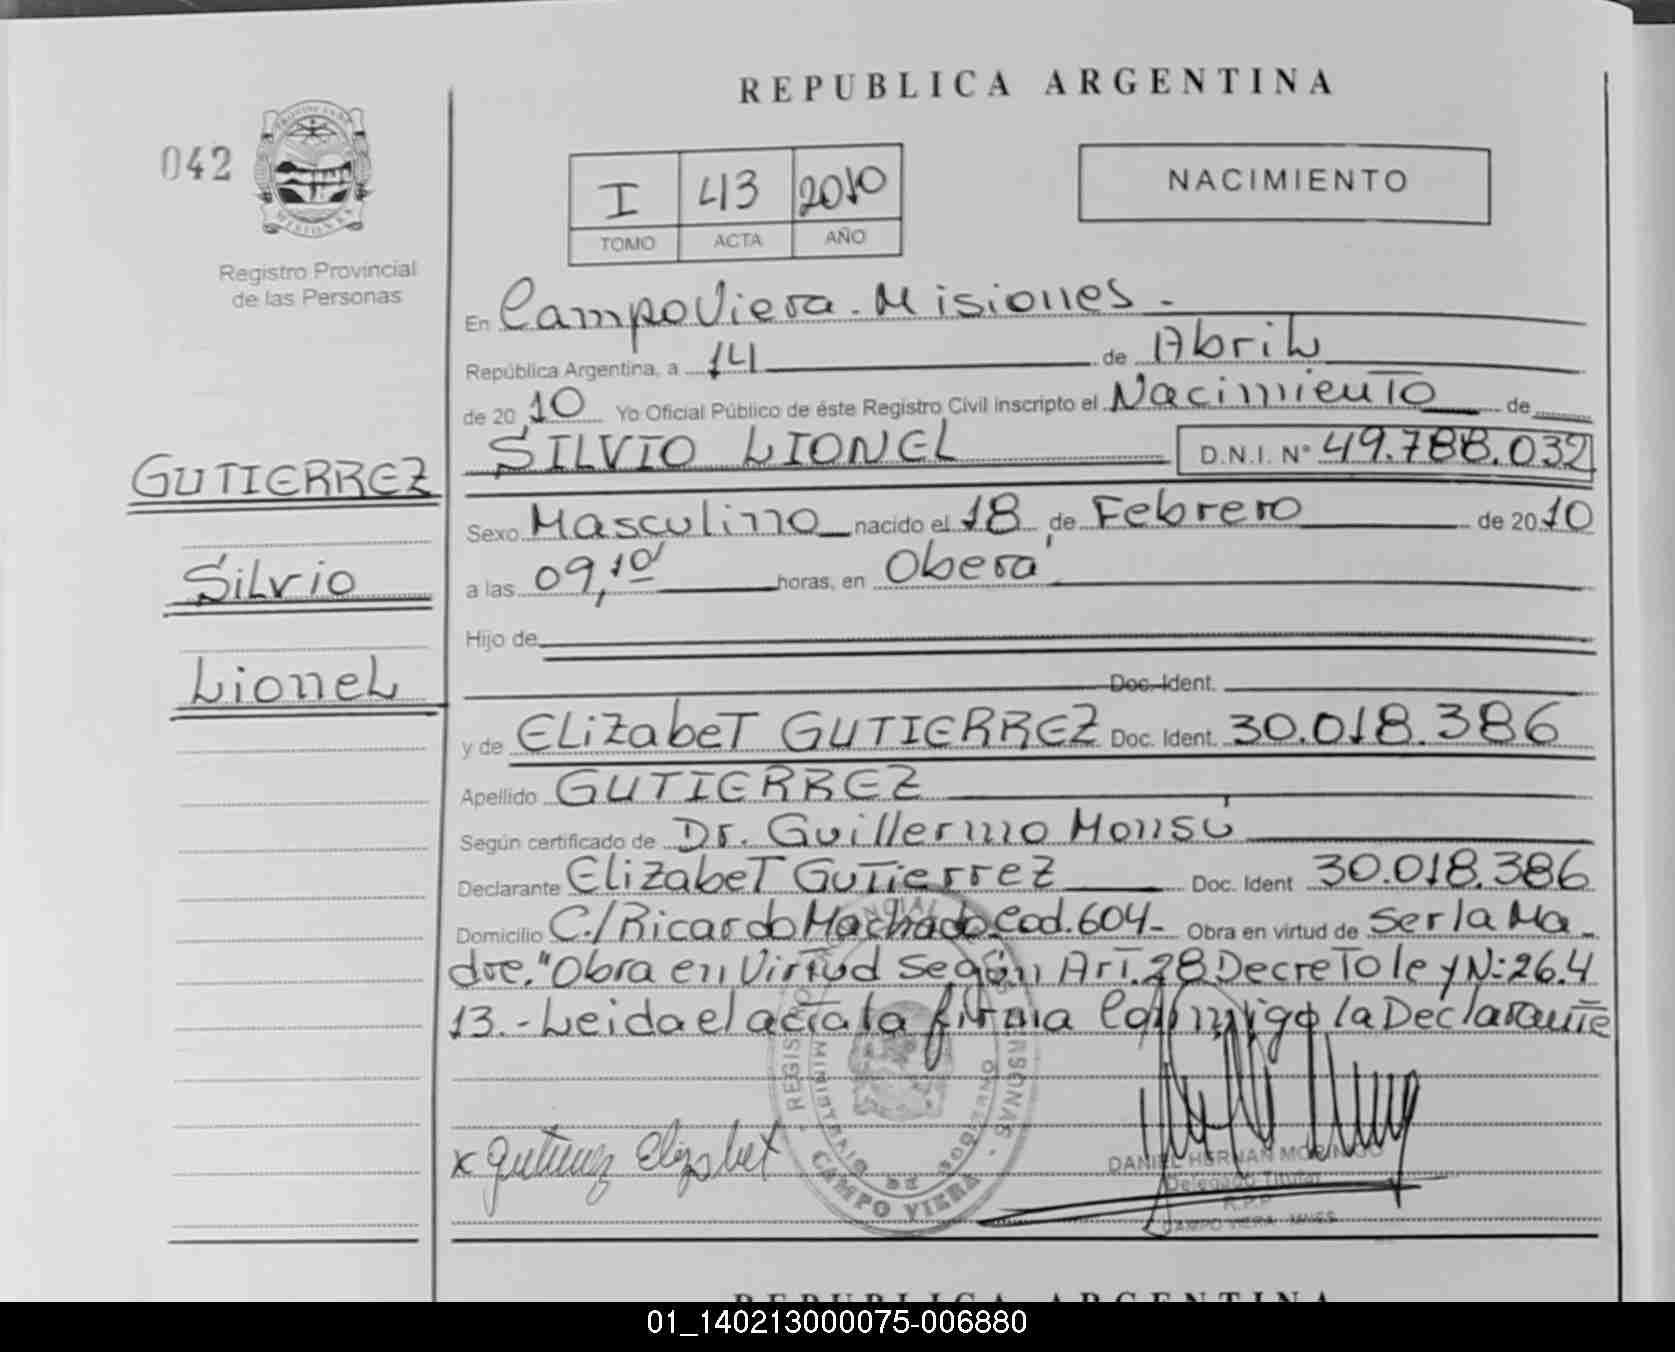 REPUBLICA ARGENTINA
042
PROVINCIA DE
MISIONES
Registro Provincial
de las Personas
I 43 2010
TOMO ACTA AÑO
NACIMIENTO
GUTIERREZ
Silvio
Lionel
En Campo Viera - Misiones -
República Argentina, a 14 de Abril
de 20 10 Yo Oficial Público de éste Registro Civil inscripto el Nacimiento de
SILVIO LIONEL D.N.I. Nº 49.788.032
Sexo Masculino nacido el 18 de Febrero de 20 10
a las 09,10 horas, en Oberá
Hijo de
Doc. Ident.
y de Elizabet GUTIERREZ Doc. Ident. 30.018.386
Apellido GUTIERREZ
Según certificado de Dr. Guillermo Monsú
Declarante Elizabet Gutierrez Doc. Ident 30.018.386
Domicilio C./Ricardo Machado Cod. 604- Obra en virtud de Ser la Ma-
dre. "Obra en Virtud Según Art. 28 Decreto ley N: 26.4
13.- Leida el acta la firma Conmigo la Declarante
x Gutierrez Elizabet
REGISTRO PERSONAS
MINISTERIO DE GOBIERNO
CAMPO VIERA
DANIEL HERNAN
Delegado Titular
R.P.P.
CAMPO VIERA - MNES
REPUBLICA ARGENTINA
01_140213000075-006880